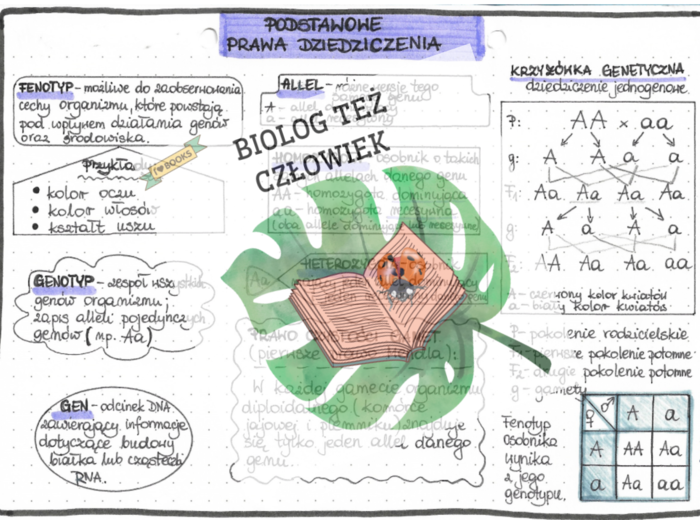 PODSTAWOWE
PRAWA DZIEDZICZENIA
FENOTYP - możliwe do zaobserwowania
cechy organizmu, które powstają
pod wpływem działania genów
oraz środowiska.
Przykłady
I ♥ BOOKS
• kolor oczu
• kolor włosów
• kształt uszu
GENOTYP - zespół wszystkich
genów organizmu;
zapis alleli pojedynczych
genów (np. Aa)
GEN - odcinek DNA
zawierający informacje
dotyczące budowy
białka lub cząsteczki
RNA.
ALLEL - różne wersje tego
samego genu
A - allel
a - allel
BIOLOG TEŻ
CZŁOWIEK
osobnik o takich
allelach danego genu
AA - homozygota dominująca
aa - homozygota recesywna
(oba allele dominujące lub recesywne)
HETEROZY
Aa
jeden
PRAWO CZYSTOŚCI GAMET
(pierwsze prawo Mendla):
W każdej gamecie organizmu
diploidalnego (komórce
jajowej i plemniku) znajduje
się tylko jeden allel danego
genu.
KRZYŻÓWKA GENETYCZNA
dziedziczenie jednogenowe.
P: AA × aa
g: A A a a
F₁: Aa Aa Aa Aa
g: A a A a
F₂: AA Aa Aa aa
A - czerwony kolor kwiatów
a - biały kolor kwiatów
P - pokolenie rodzicielskie
F₁ - pierwsze pokolenie potomne
F₂ - drugie pokolenie potomne
g - gamety
Fenotyp
osobnika
wynika
z jego
genotypu.
♀ ♂ A a
A AA Aa
a Aa aa